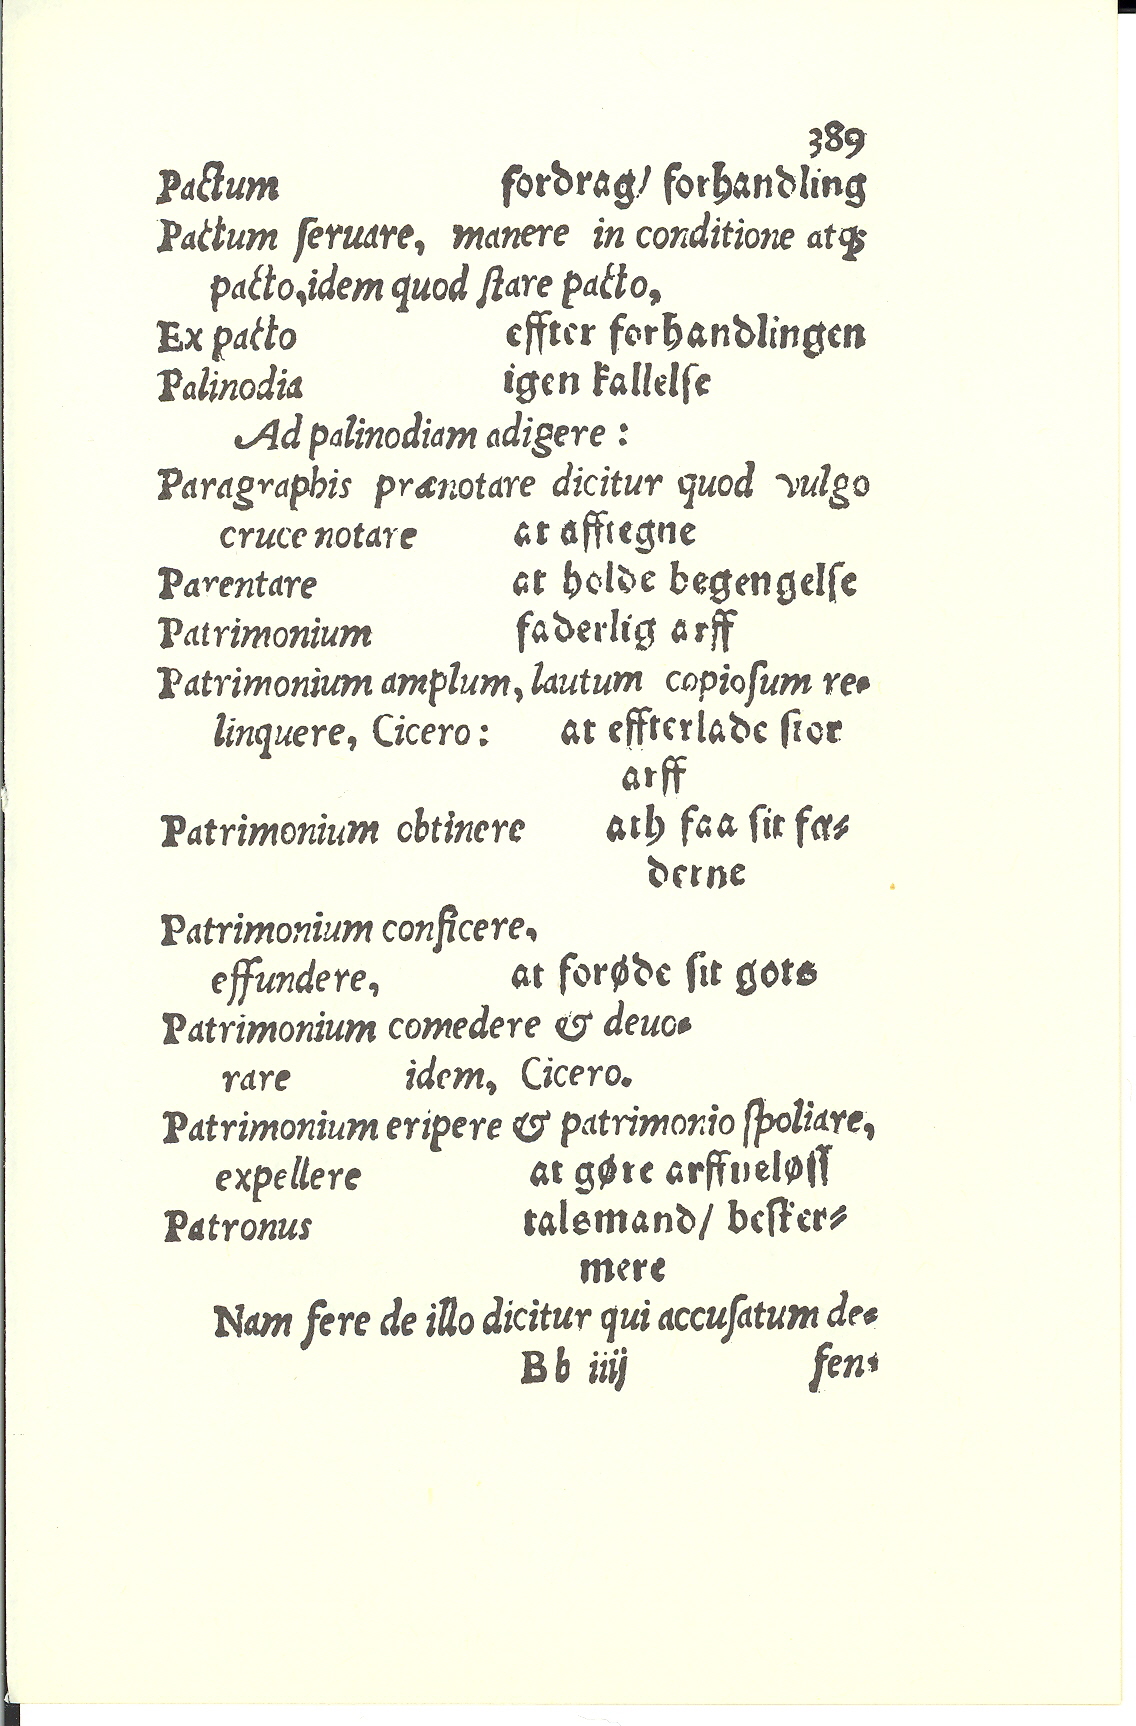 389
Pactum fordrag/ forhandling
Pactum ſeruare, manere in conditione atqꝫ
pacto,idem quod ſtare pacto,
Ex pacto effter forhandlingen
Palinodia igen kallelſe
Ad palinodiam adigere :
Paragraphis prænotare dicitur quod vulgo
cruce notare at afftegne
Parentare at holde begengelſe
Patrimonium faderlig arff
Patrimonium amplum, lautum copioſum re-
linquere, Cicero : at effterlade ſtor
arff
Patrimonium obtinere ath faa ſit fæ-
derne
Patrimonium conficere,
effundere, at forøde ſit gots
Patrimonium comedere & deuo-
rare idem, Cicero.
Patrimonium eripere & patrimonio ſpoliare,
expellere at gøre arffueløſſ
Patronus talsmand/ beſker-
mere
Nam fere de illo dicitur qui accuſatum de-
Bb iiij fen-